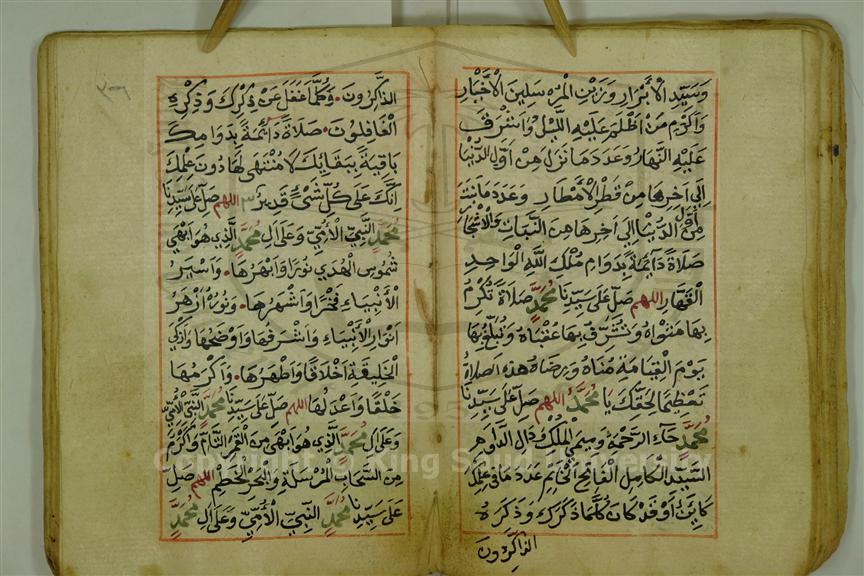 وَسَيِّدِ الْأَبْرَارِ وَزَيْنِ الْمُرْسَلِينَ الْأَخْيَارِ
وَأَكْرَمِ مَنْ أَظْلَمَ عَلَيْهِ اللَّيْلُ وَأَشْرَقَ
عَلَيْهِ النَّهَارُ وَعَدَدَ مَا نَزَلَ مِنْ أَوَّلِ الدُّنْيَا
إِلَى آخِرِهَا مِنْ قَطْرِ الْأَمْطَارِ وَعَدَدَ مَا نَبَتَ
مِنْ أَوَّلِ الدُّنْيَا إِلَى آخِرِهَا مِنَ النَّبَاتِ وَالْأَشْجَارِ
صَلَاةً دَائِمَةً بِدَوَامِ مُلْكِ اللَّهِ الْوَاحِدِ
الْقَهَّارِ اللهم صَلِّ عَلَى سَيِّدِنَا مُحَمَّدٍ صَلَاةً تُكْرِمُ
بِهَا مَثْوَاهُ وَتُشَرِّفُ بِهَا عُقْبَاهُ وَتُبَلِّغُ بِهَا
يَوْمَ الْقِيَامَةِ مُنَاهُ وَرِضَاهُ هَذِهِ الصَّلَاةُ
تَعْظِيمًا لِحَقِّكَ يَا مُحَمَّدُ اللهم صَلِّ عَلَى سَيِّدِنَا
مُحَمَّدٍ حَاءِ الرَّحْمَةِ وَمِيمِ الْمُلْكِ وَدَالِ الدَّوَامِ
السَّيِّدِ الْكَامِلِ الْفَاتِحِ الْخَاتِمِ عَدَدَ مَا فِي عِلْمِكَ
كَائِنٌ أَوْ قَدْ كَانَ كُلَّمَا ذَكَرَكَ وَذَكَرَهُ
الذَّاكِرُونَ
الذَّاكِرُونَ وَكُلَّمَا غَفَلَ عَنْ ذِكْرِكَ وَذِكْرِهِ
الْغَافِلُونَ صَلَاةً دَائِمَةً بِدَوَامِكَ
بَاقِيَةً بِبَقَائِكَ لَا مُنْتَهَى لَهَا دُونَ عِلْمِكَ
إِنَّكَ عَلَى كُلِّ شَيْءٍ قَدِيرٌ ٣ اللهم صَلِّ عَلَى سَيِّدِنَا
مُحَمَّدٍ النَّبِيِّ الْأُمِّيِّ وَعَلَى آلِ مُحَمَّدٍ الَّذِي هُوَ أَبْهَى
شُمُوسِ الْهُدَى نُورًا وَأَبْهَرُهَا وَأَسْيَرُ
الْأَنْبِيَاءِ فَخْرًا وَأَشْهَرُهَا وَنُورُهُ أَزْهَرُ
أَنْوَارِ الْأَنْبِيَاءِ وَأَشْرَفُهَا وَأَوْضَحُهَا وَأَزْكَى
الْخَلِيقَةِ أَخْلَاقًا وَأَطْهَرُهَا وَأَكْرَمُهَا
خَلْقًا وَأَعْدَلُهَا اللهم صَلِّ عَلَى سَيِّدِنَا مُحَمَّدٍ النَّبِيِّ الْأُمِّيِّ
وَعَلَى آلِ مُحَمَّدٍ الَّذِي هُوَ أَبْهَى مِنَ الْقَمَرِ التَّامِّ وَأَكْرَمُ
مِنَ السَّحَابِ الْمُرْسَلَةِ وَالْبَحْرِ الْخَطْمِ اللهم صَلِّ
عَلَى سَيِّدِنَا مُحَمَّدٍ النَّبِيِّ الْأُمِّيِّ وَعَلَى آلِ مُحَمَّدٍ